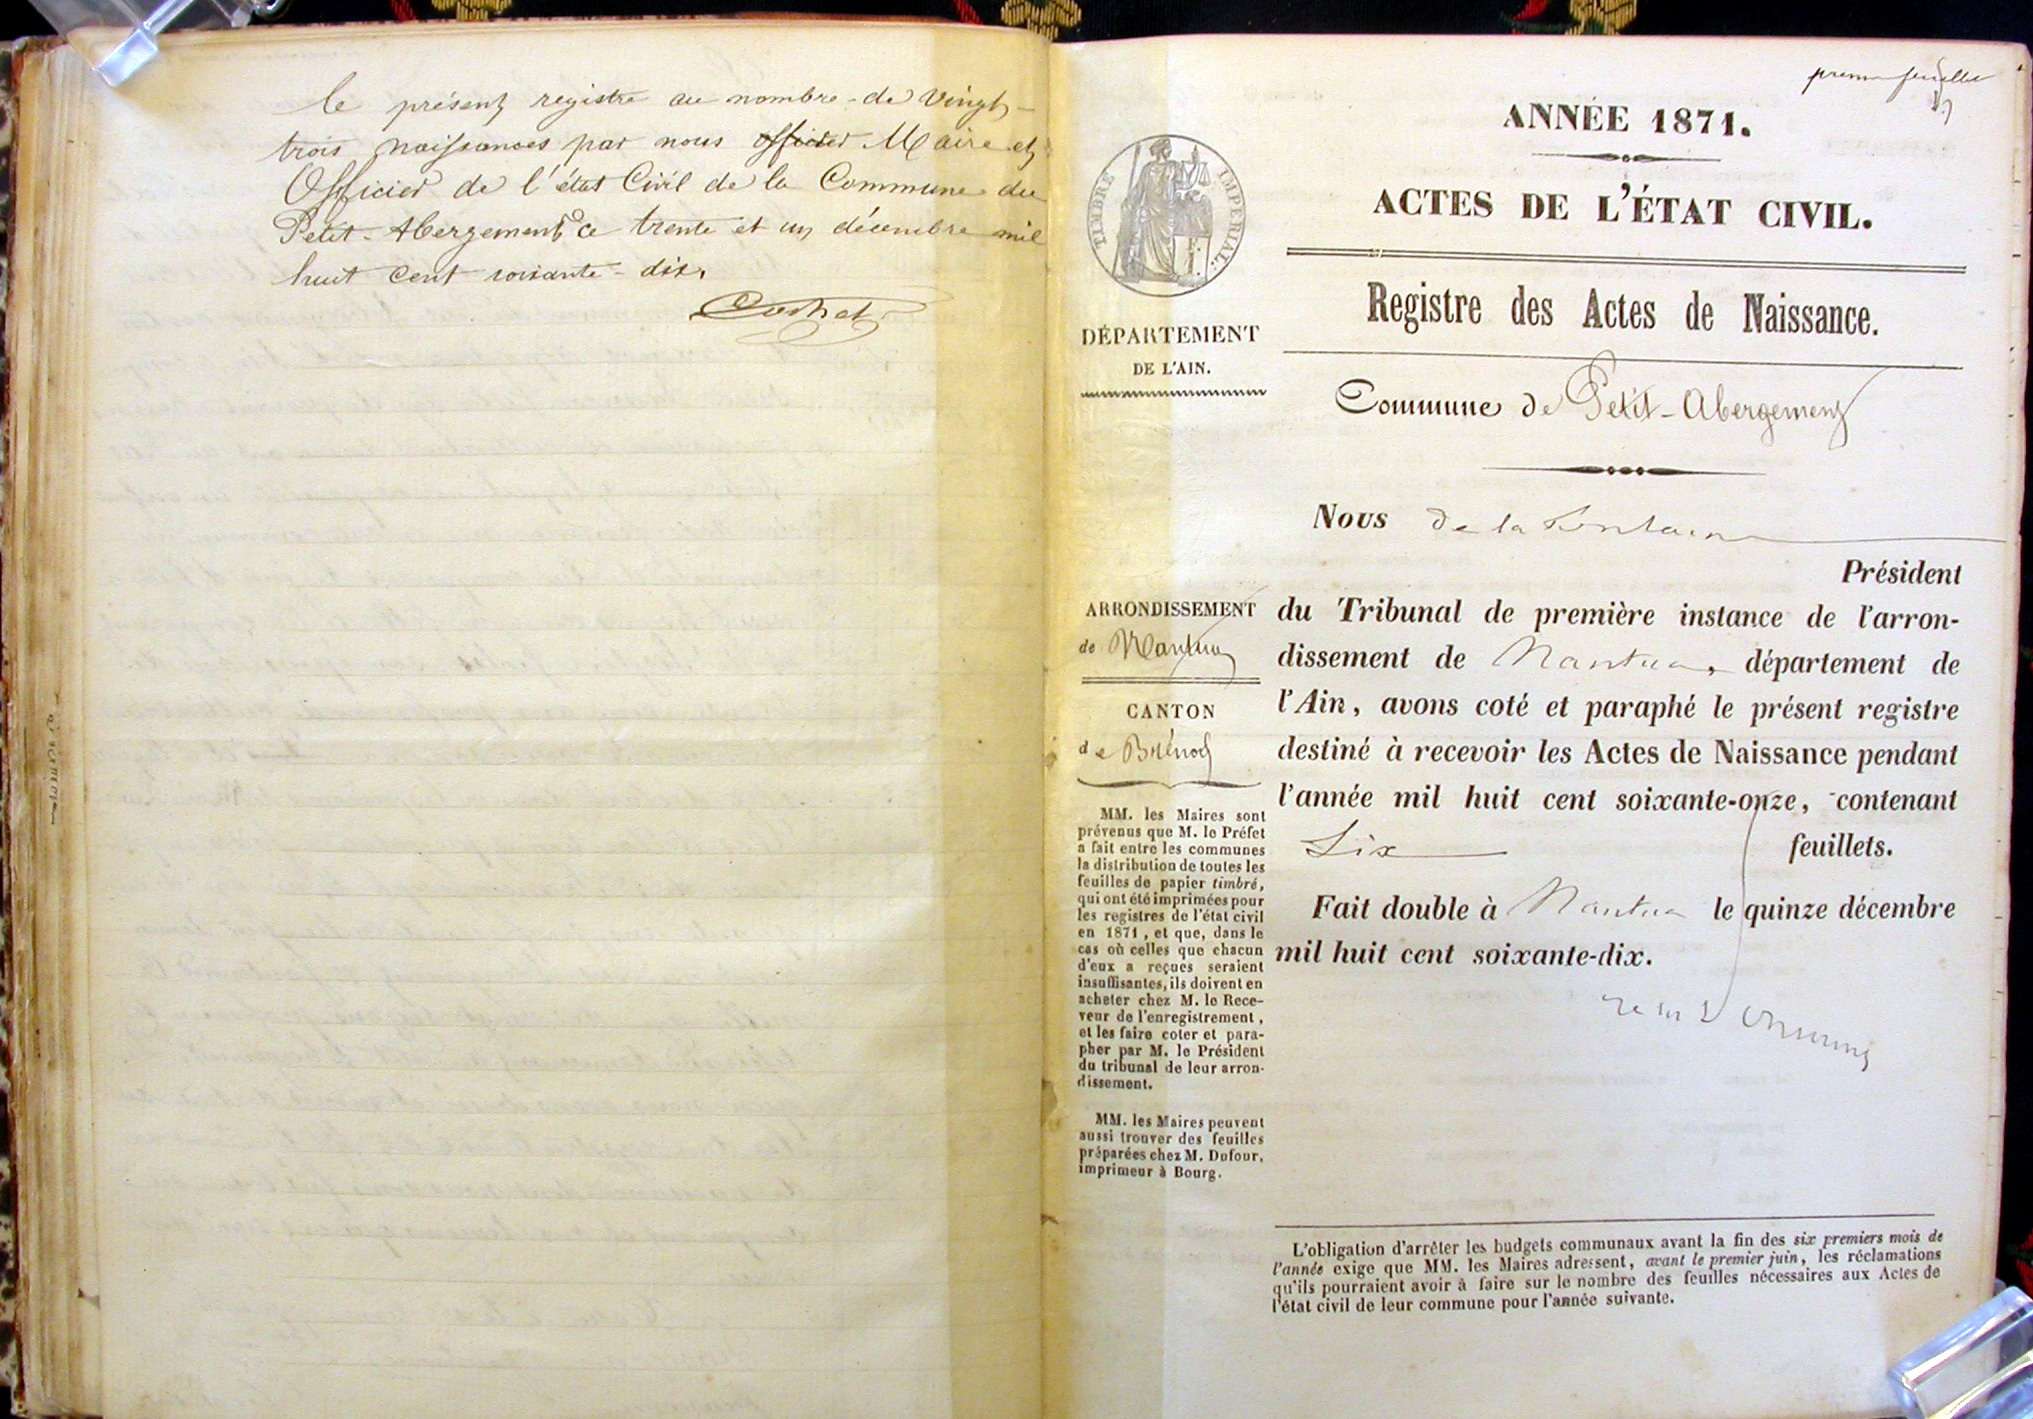 le présent registre au nombre de Vingt-
trois naissances par nous officier Maire et
Officier de l'état Civil de la Commune du
Petit-Abergement ce trente et un décembre mil
huit cent soixante-dix.
premier feuillet
TIMBRE IMPERIAL.
ANNÉE 1871.
ACTES DE L'ÉTAT CIVIL.
Registre des Actes de Naissance.
DÉPARTEMENT
DE L'AIN.
Commune de Petit-Abergement
Nous de la Fontaine
Président
du Tribunal de première instance de l'arron-
dissement de Nantua, département de
l'Ain, avons coté et paraphé le présent registre
destiné à recevoir les Actes de Naissance pendant
l'année mil huit cent soixante-onze, contenant
Six feuillets.
Fait double à Nantua le quinze décembre
mil huit cent soixante-dix.
ARRONDISSEMENT
de Nantua
CANTON
de Brénod
MM. les Maires sont
prévenus que M. le Préfet
a fait entre les communes
la distribution de toutes les
feuilles de papier timbré,
qui ont été imprimées pour
les registres de l'état civil
en 1871, et que, dans le
cas où celles que chacun
d'eux a reçues seraient
insuffisantes, ils doivent en
acheter chez M. le Rece-
veur de l'enregistrement,
et les faire coter et para-
pher par M. le Président
du tribunal de leur arron-
dissement.
MM. les Maires peuvent
aussi trouver des feuilles
préparées chez M. Dufour,
imprimeur à Bourg.
L'obligation d'arrêter les budgets communaux avant la fin des six premiers mois de
l'année exige que MM. les Maires adressent, avant le premier juin, les réclamations
qu'ils pourraient avoir à faire sur le nombre des feuilles nécessaires aux Actes de
l'état civil de leur commune pour l'année suivante.